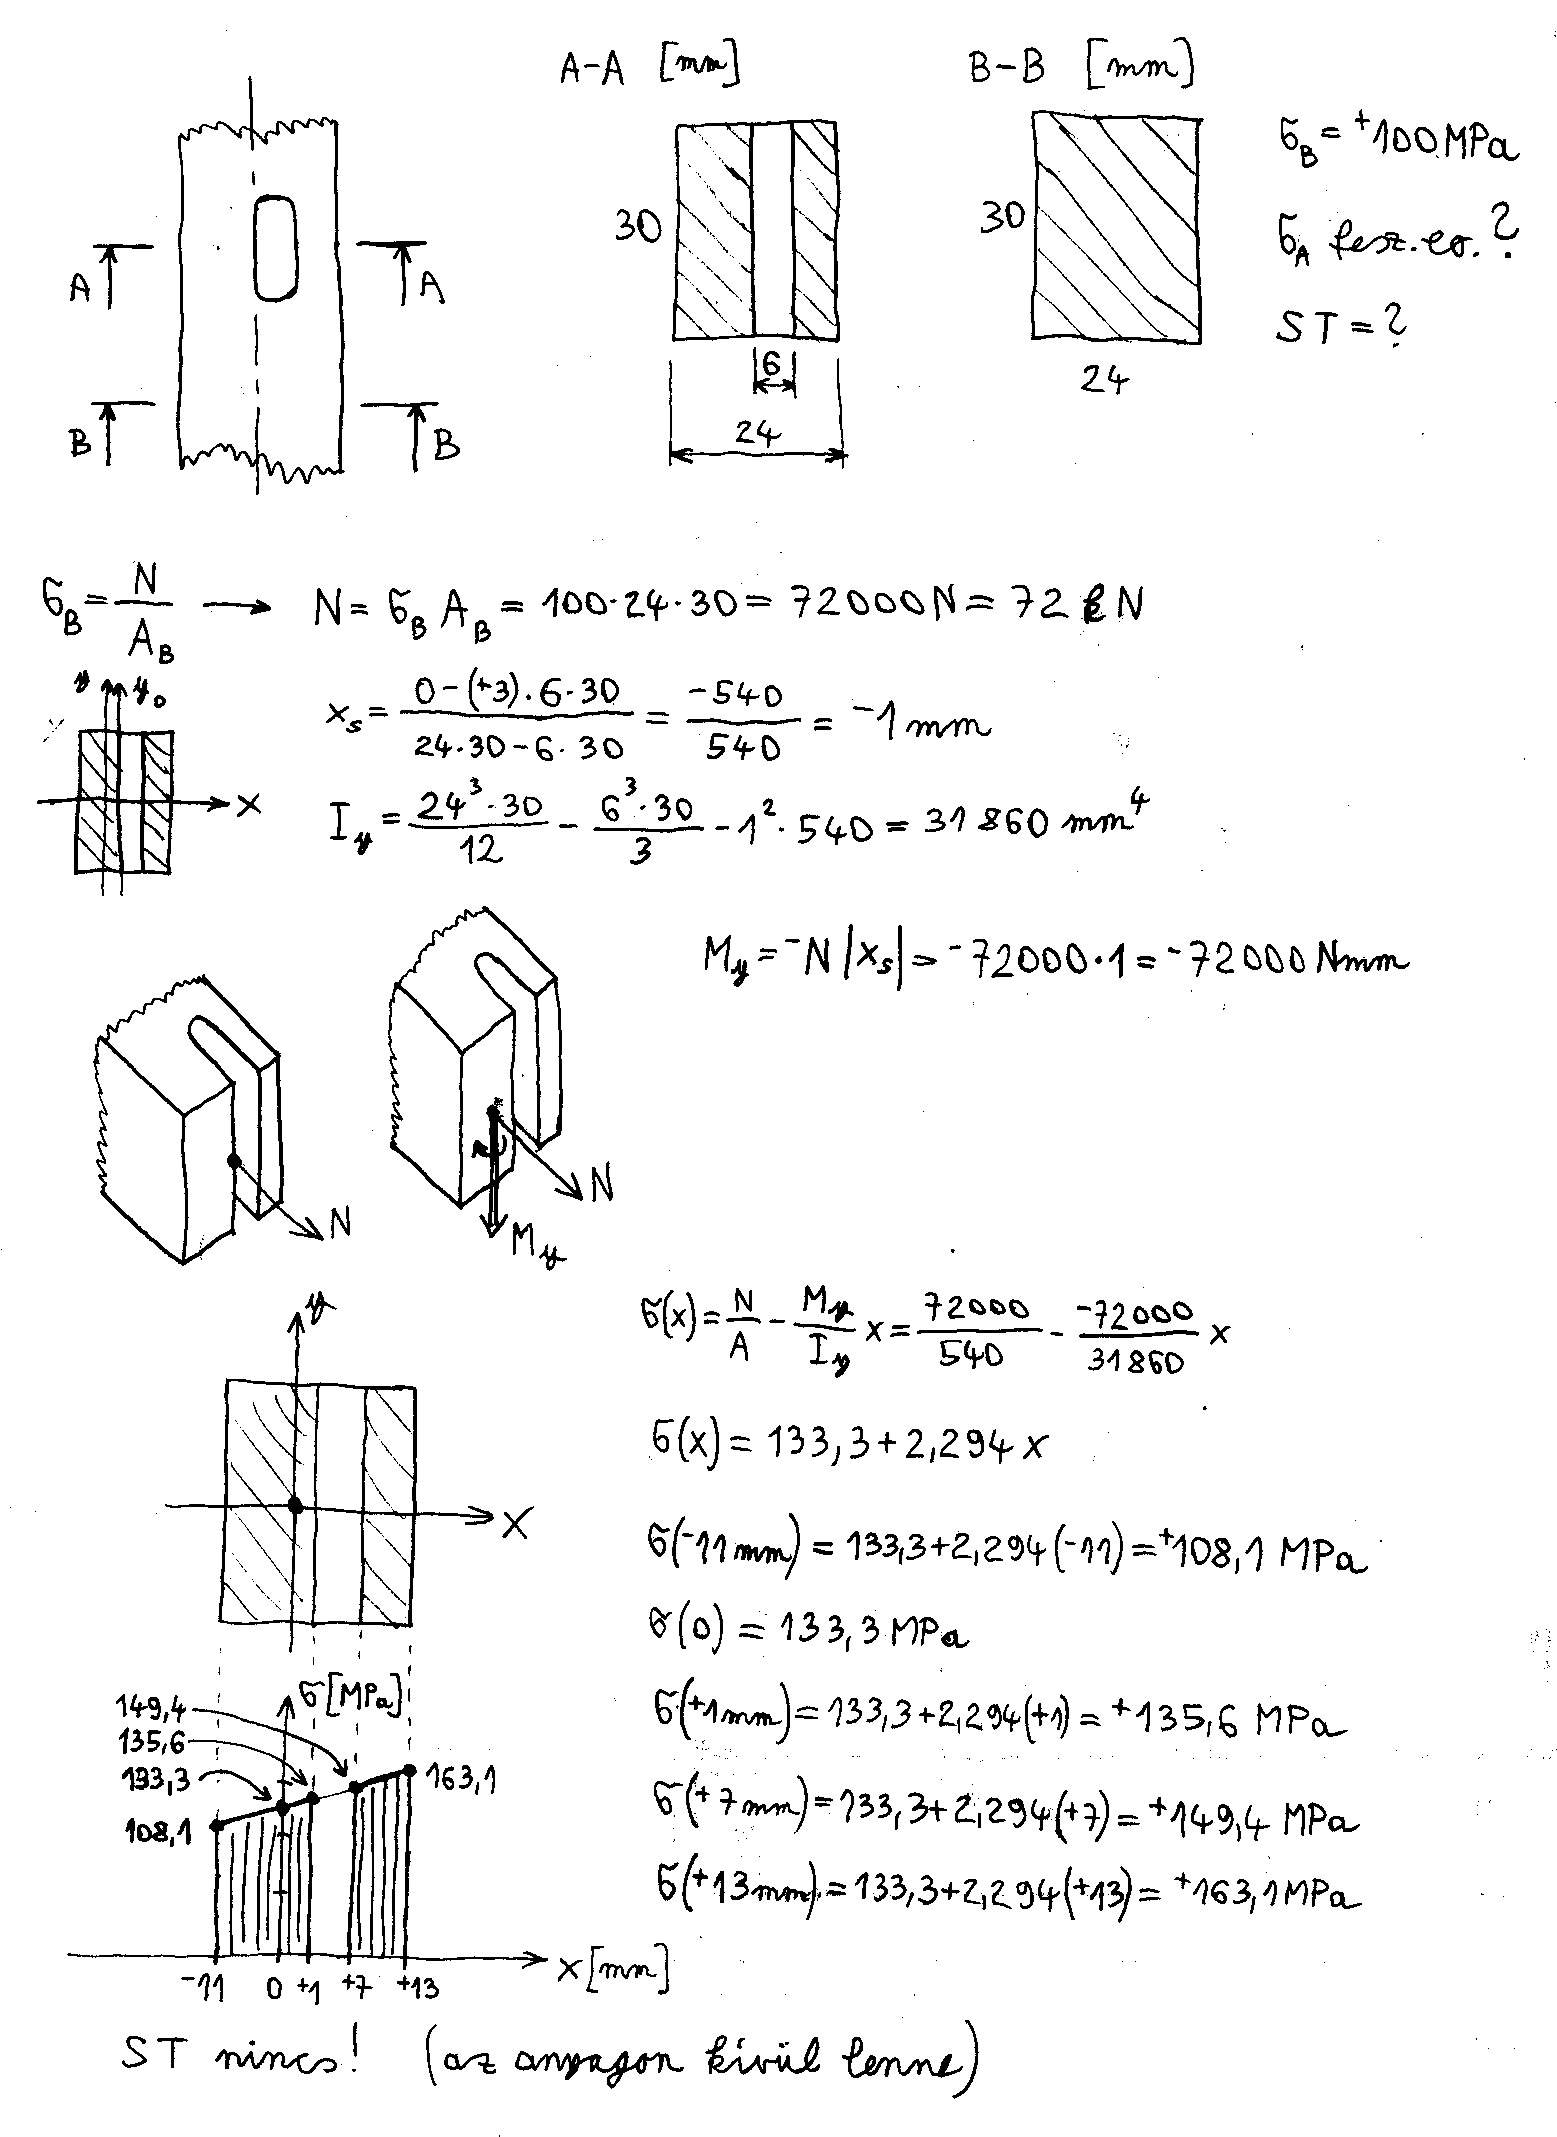 A-A [mm]
B-B [mm]
A A
B B
30
6
24
30
24
σ_B = ⁺100 MPa
σ_A fesz. eo. ?
ST = ?
σ_B = N/A_B → N = σ_B A_B = 100·24·30 = 72000 N = 72 kN
y y₀
x
x_s = (0-(+3)·6·30)/(24·30-6·30) = -540/540 = ⁻1 mm
I_y = 24³·30/12 - 6³·30/3 - 1²·540 = 31860 mm⁴
M_y = ⁻N |x_s| = ⁻72000·1 = ⁻72000 Nmm
N
N
M_y
y
x
σ(x) = N/A - M_y/I_y x = 72000/540 - ⁻72000/31860 x
σ(x) = 133,3+2,294 x
σ(⁻11 mm) = 133,3+2,294(-11) = ⁺108,1 MPa
σ(0) = 133,3 MPa
σ(⁺1 mm) = 133,3+2,294(+1) = ⁺135,6 MPa
σ(⁺7 mm) = 133,3+2,294(+7) = ⁺149,4 MPa
σ(⁺13 mm) = 133,3+2,294(⁺13) = ⁺163,1 MPa
σ [MPa]
149,4
135,6
133,3
163,1
108,1
-11 0 +1 +7 +13
x [mm]
ST nincs! (az anyagon kívül lenne)